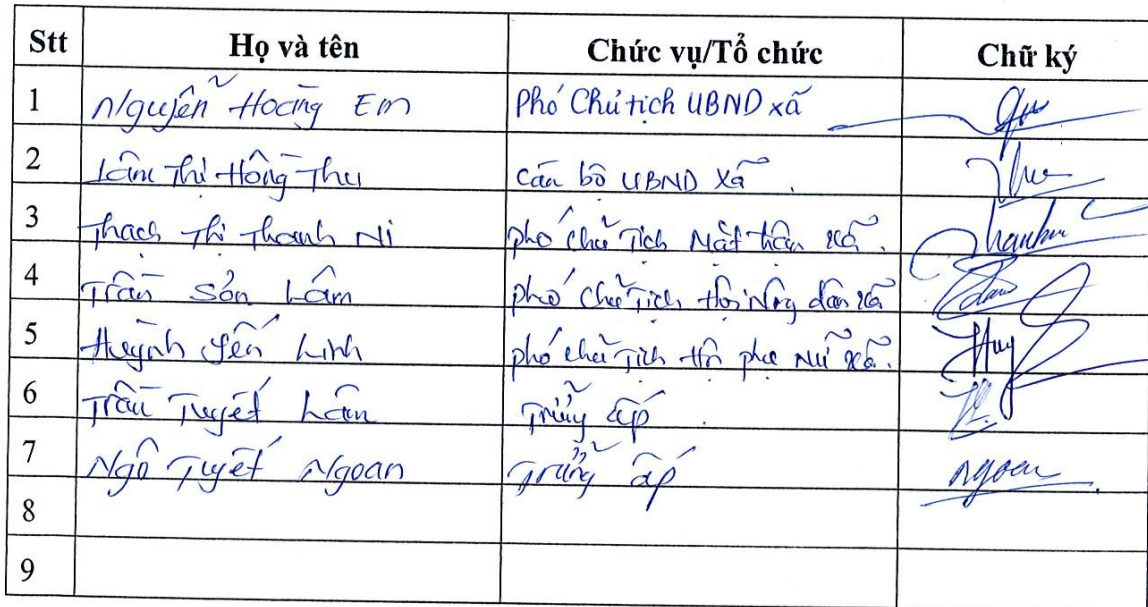 Stt Họ và tên Chức vụ/Tổ chức Chữ ký
1 Nguyễn Hoàng Em Phó Chủ tịch UBND xã
2 Lâm Thị Hồng Thu Cán bộ UBND xã. Thu
3 Thạch Thị Thanh Ni Phó Chủ Tịch Mặt trận xã.
4 Trần Sơn Lâm phó Chủ Tịch Hội Nông dân xã
5 Huỳnh Yến Linh phó chủ Tịch Hội phụ Nữ xã. Huy
6 Trần Tuyết Lân Trưởng ấp
7 Ngô Tuyết Ngoan Trưởng ấp Ngoan
8
9